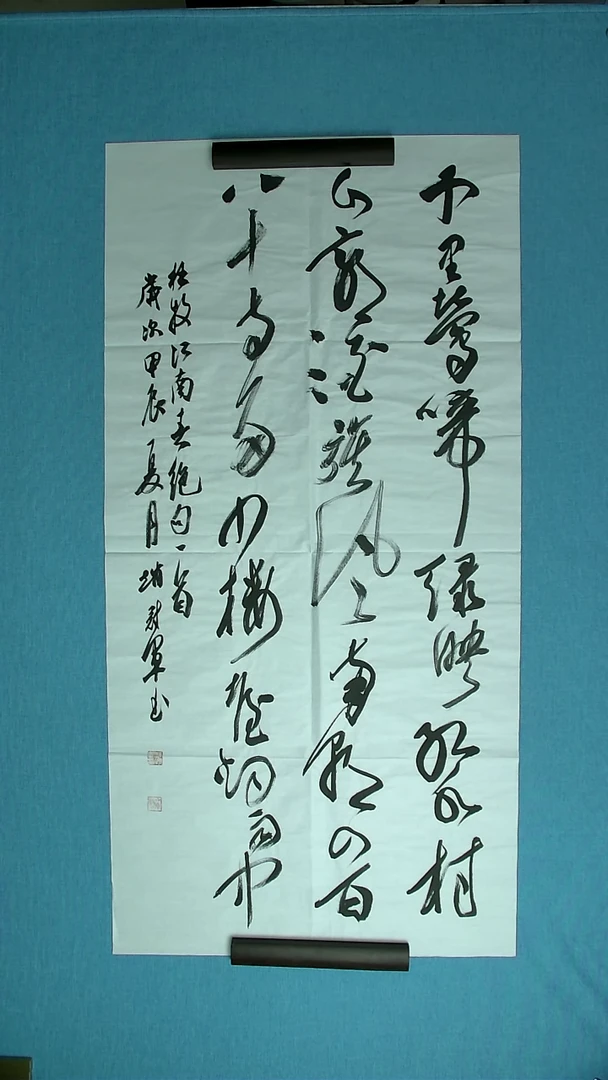 千里鶯啼绿映红水村
山郭酒旗风南朝四百
八十寺多少楼臺烟雨中
杜牧江南春绝句一首
歲次甲辰夏月 军书